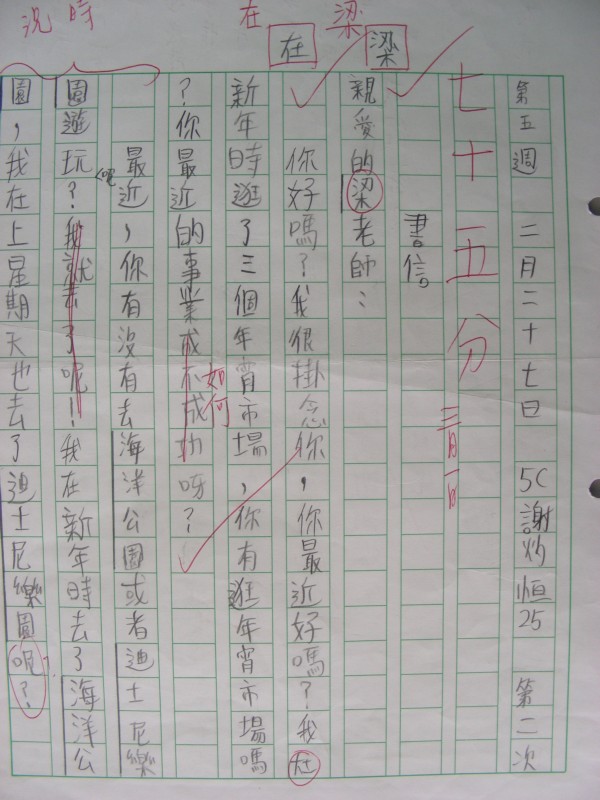 況時
在梁
在 梁
第五週 二月二十七日 5C 謝灼恒 25 第二次
七十五分 三月一日
書信
親愛的梁老師：
你好嗎？我很掛念你，你最近好嗎？我在
新年時逛了三個年宵市場，你有逛年宵市場嗎
？你最近的事業成不成功呀？
如何
最近，你有沒有去海洋公園或者迪士尼樂
園遊玩？我就去了呢！我在新年時去了海洋公
呢
園，我在上星期天也去了迪士尼樂園呢？